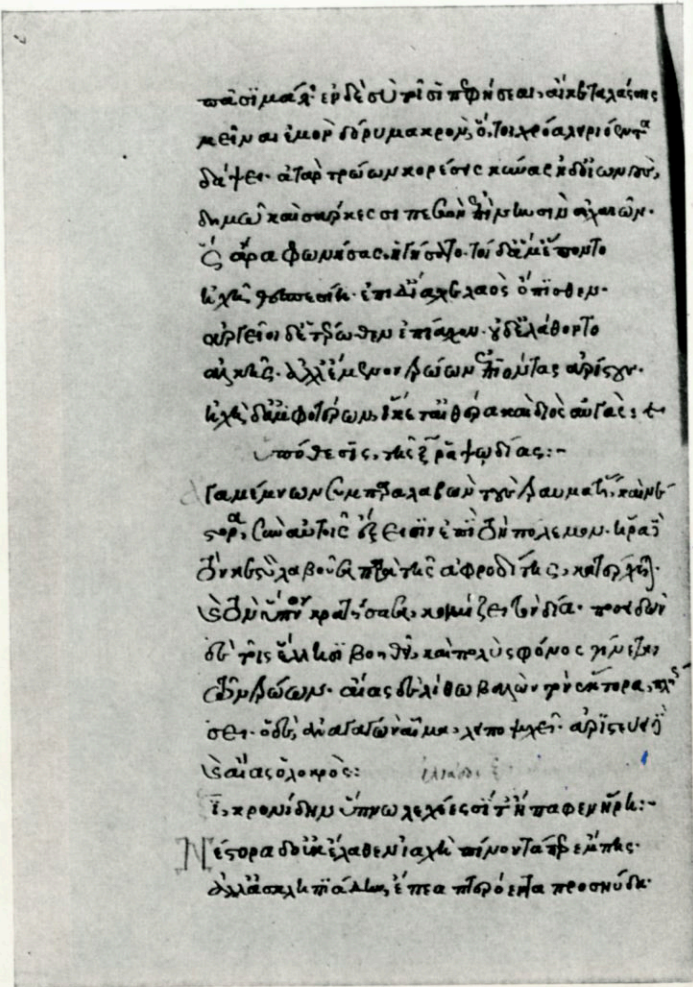 πᾶσι μάλ' ἐν δὲ σὺ τοῖσι πεφήσεαι, αἴ κε ταλάσσης
μεῖναι ἐμὸν δόρυ μακρὸν, ὅ τοι χρόα λειριόεντα
δάψει· ἀτὰρ τρώων κορέεις κύνας ἠδ' οἰωνοὺς,
δημῶ καὶ σάρκεσσι πεσὼν ἐπὶ νηυσὶν ἀχαιῶν·
ὣς ἄρα φωνήσας, ἡγήσατο· τοὶ δ' ἅμ' ἕποντο
ἠχῆ θεσπεσίη· ἐπὶ δ' ἴαχε λαὸς ὄπισθεν·
ἀργεῖοι δ' ἑτέρωθεν ἐπίαχον· οὐδ' ἐλάθοντο
ἀλκῆς· ἀλλ' ἔμενον τρώων ἐπιόντας ἀρίστους·
ἠχὴ δ' ἀμφοτέρων, ἵκετ' αἰθέρα καὶ διὸς αὐγάς:
ὑπόθεσις τῆς ξ ῥαψωδίας:-
Ἀγαμέμνων συμπαραλαβὼν τοὺς τραυματίας, καὶ νέ
στορα, σὺν αὐτοῖς ἔξεισιν ἐπὶ τὸν πόλεμον· ἥρα
παρὰ τῆς ἀφροδίτης, κατέρχεται·
τὸν ὕπνον κοιμίζει τὸν δία· ποσειδῶν
δὲ τοῖς ἕλλησι βοηθεῖ, καὶ πολὺς φόνος γίνεται
τῶν τρώων· αἴας δὲ λίθω βαλὼν τὸν ἕκτορα, πλήσ
σει· ὁ δὲ, ἀναγαγὼν αἷμα, λιποψυχεῖ· ἀριστεύει
αἴας ὁ λοκρός:
ξ, κρονίδην ὕπνω λεχέεσσί τ' ἤπαφεν ἥρη:-
Νέστορα δ' οὐκ ἔλαθεν ἰαχὴ πίνοντά περ ἔμπης·
ἀλλ' ἀσκληπιάδην, ἔπεα πτερόεντα προσηύδα·